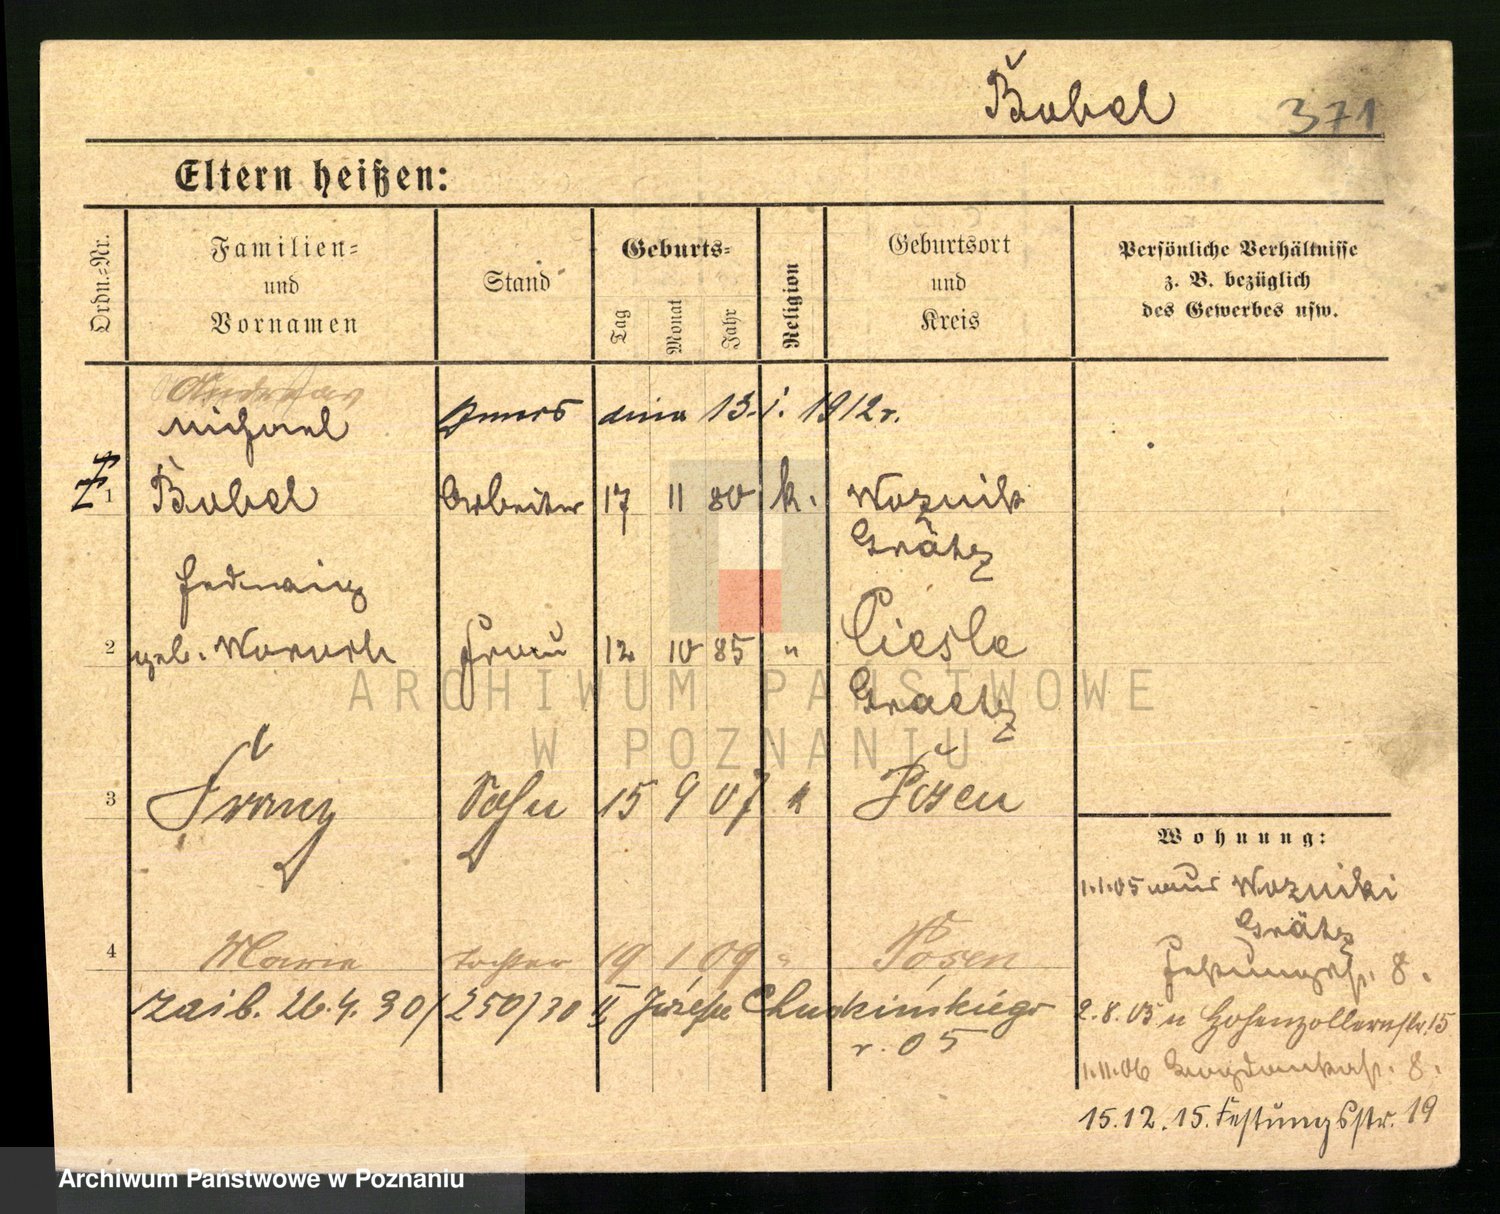 Bubel 371
Eltern heißen:
Ordn.-Nr.
Familien-
und
Vornamen
Stand
Geburts-
Tag
Monat
Jahr
Religion
Geburtsort
und
Kreis
Persönliche Verhältnisse
z. B. bezüglich
des Gewerbes usw.
Michael dnia 13. 1. 1912 r.
1 Bubel Arbeiter 17 11 80 k. Woznik
Grätz
Hedwig
2 geb. Frau 12 10 85 " Ciesle
Graetz
3 Franz Sohn 15 9 07 k Posen
Wohnung:
1.1.05 aus Wozniki
Grätz
4 Marie Tochter 19 1 09 " Posen
Festungsstr. 8.
26.4.30/250/30 II Józefa
r. 05
2.8.05 n Hohenzollernstr. 15
1.11.06 8.
15.12.15. Festungsstr. 19
ARCHIWUM PAŃSTWOWE
W POZNANIU
Archiwum Państwowe w Poznaniu